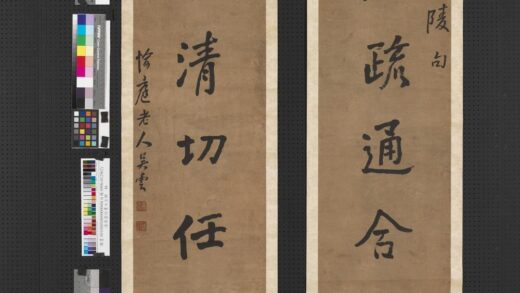 陵句
疏通合
清切任
愉庭老人吳雲